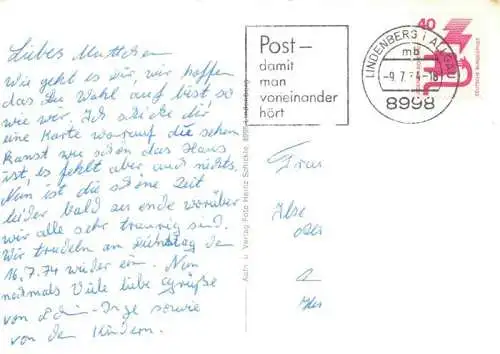 Liebes Muttchen
Wie geht es Dir, wir hoffen
das Du Wohl auf bist, so
wie wir. Ich schicke dir
eine Karte worauf du sehen
kanst wie schön das Haus
ist, es fehlt aber auch nichts.
Nun ist die schöne Zeit
leider bald zu ende worüber
wir alle sehr traurig sind.
Wir trudeln am Dienstag den
16.7.74 wieder ein. Nun
nochmals Viele liebe Grüße
von Inge sowie
von den Kindern.
Aufn. u. Verlag Foto Heinz Schickle, 8998 Lindenberg
Post–
damit
man
voneinander
hört
LINDENBERG i ALLGÄU
mb
-9.7.74-18
8998
40
DEUTSCHE BUNDESPOST
Frau
Ilse